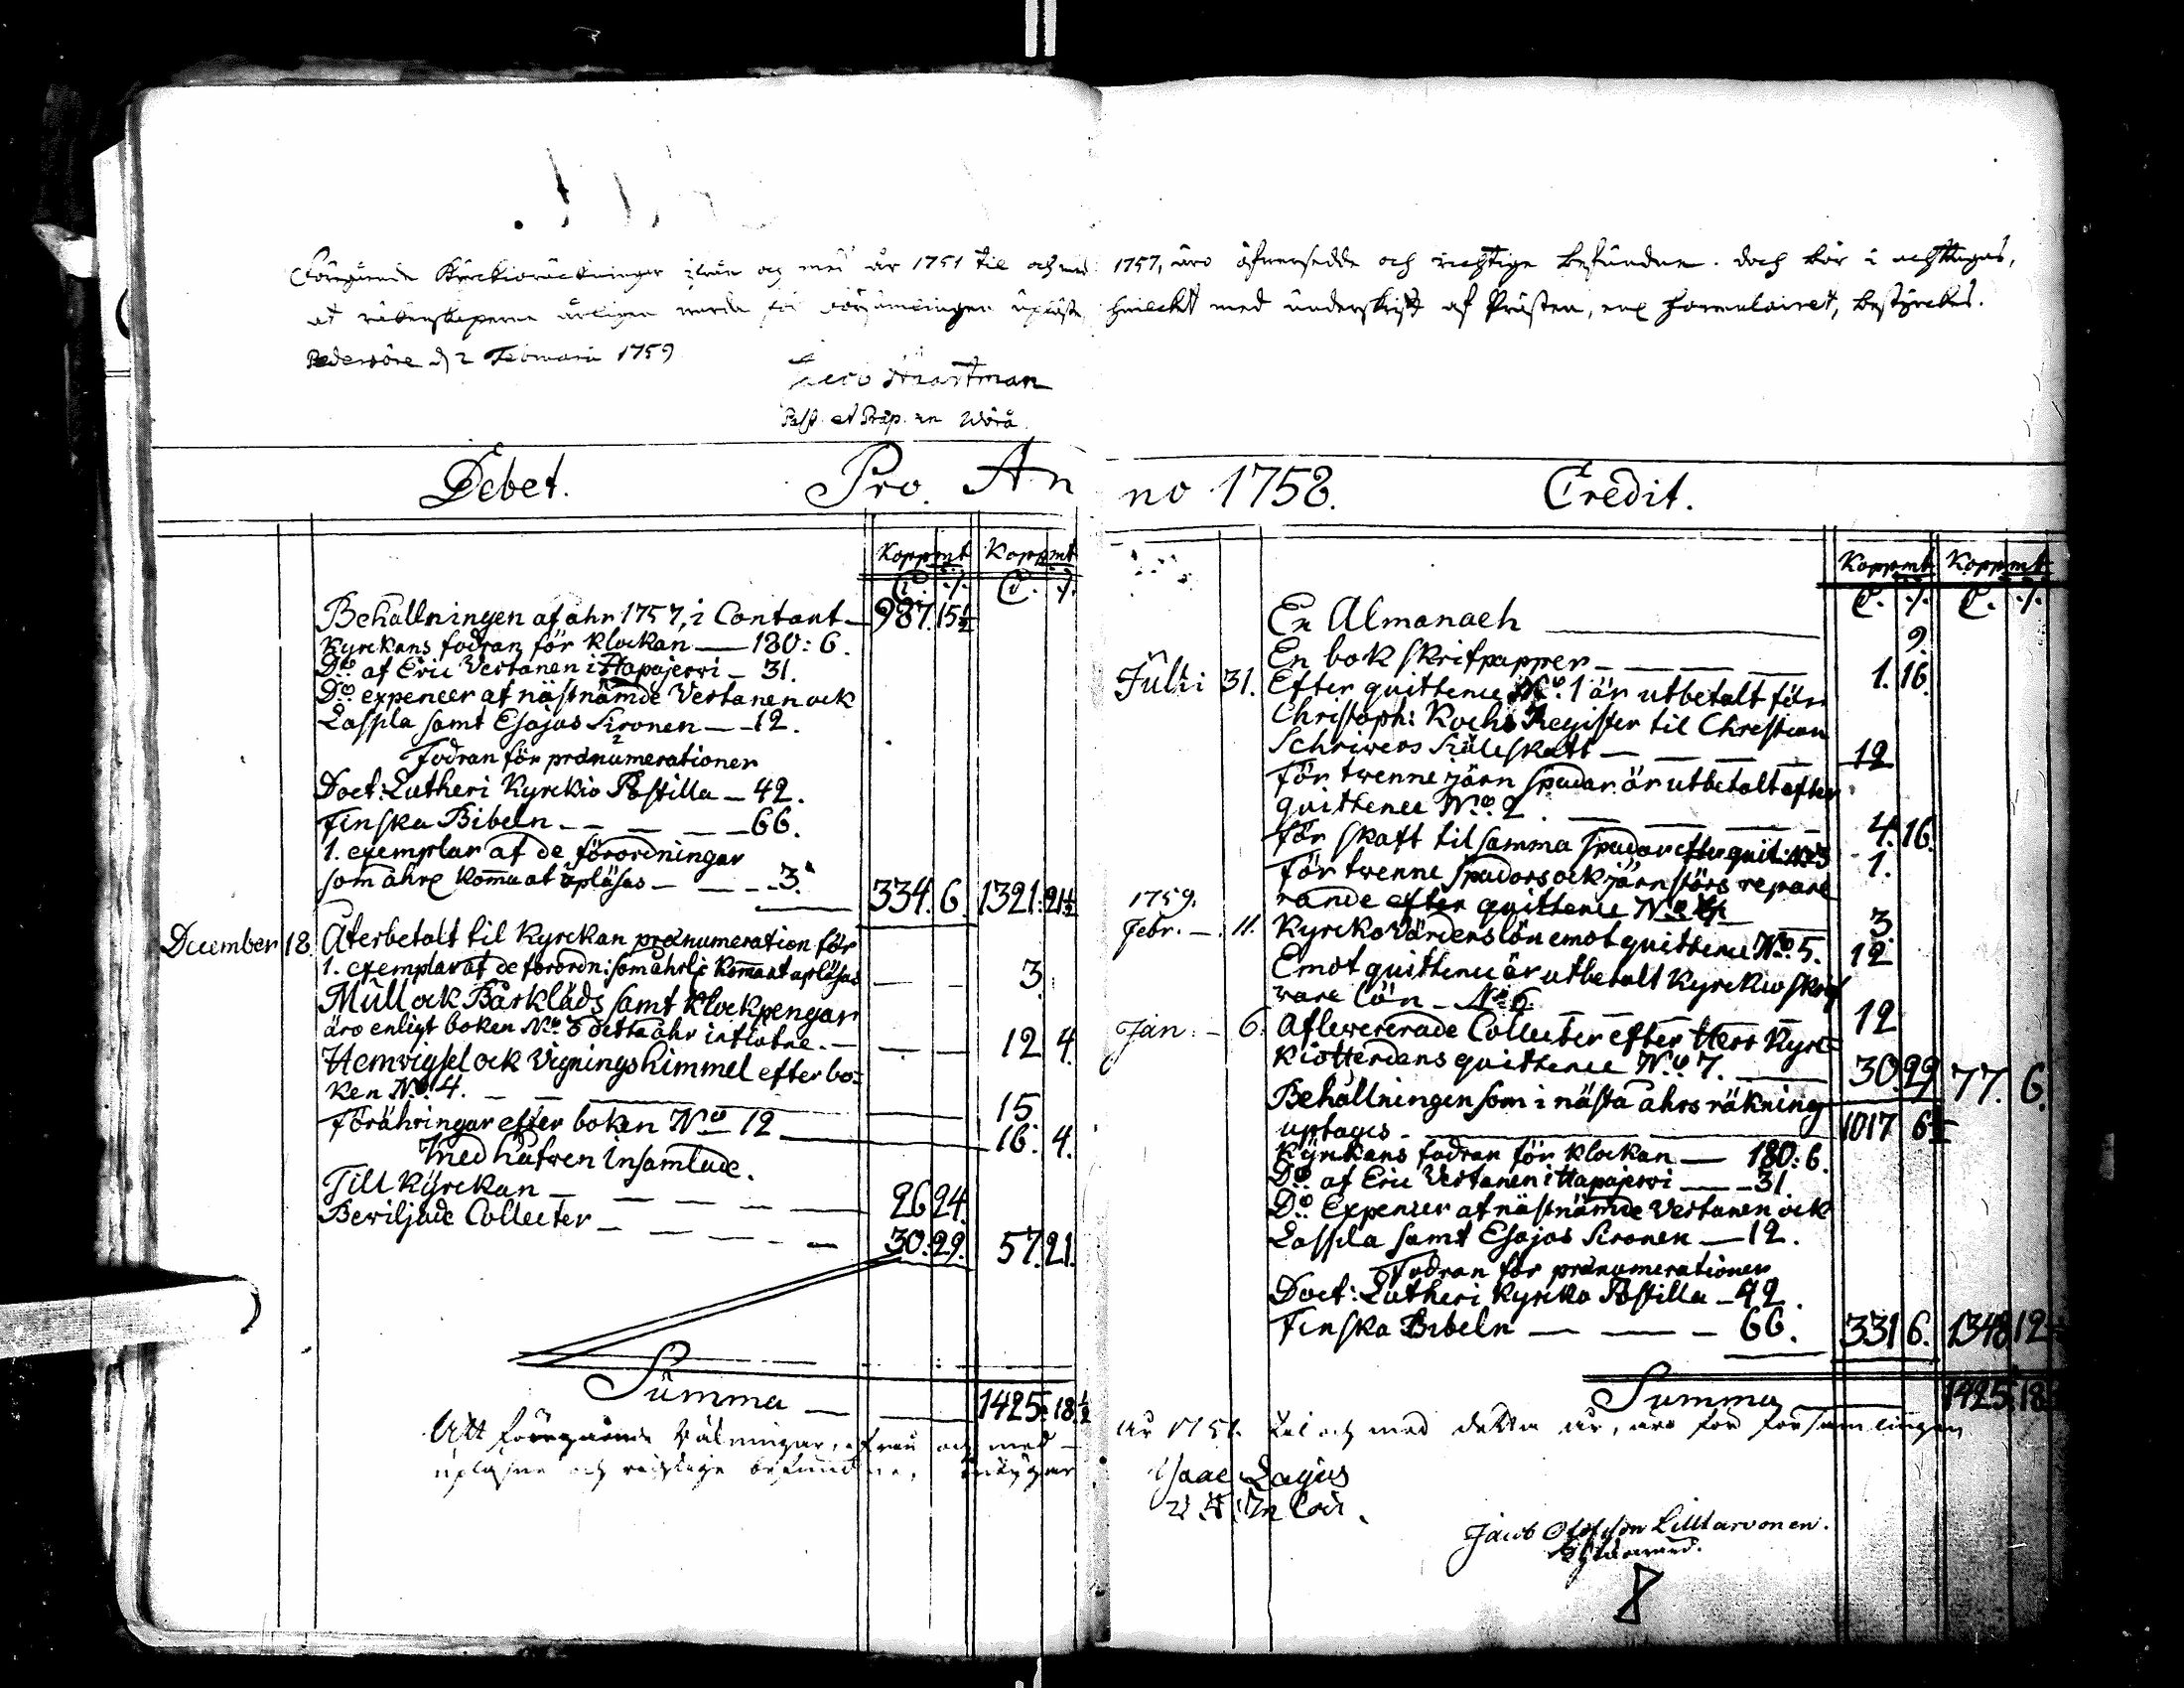 Föregående Kyrckioräckningar ifrån och med år 1751 til och med 1757, äro öfversedde och richtige befundne. doch bör i acht tagas,
at räkenskaperne årligen warda för församlingen upläste, hvilcket med underskrift af Prästen, enl. Formulairet, bestyrckes.
Pedersöre d. 2 Februarii 1759
Jacob Haartman
Past. et Præp. in Wörå.
Debet. Pro. Anno 1758. Credit.
Koppmt Koppmt
D. ./. D. ./.
Behållningen af åhr 1757, i Contant — 987. 15½
Kyrckans fodran för klockan — 180: 6.
Do. af Eric Vertanen i Hapajerwi — 31.
Do. expencer af nästnämde Vertanen ock
Lassila samt Esajas Sironen — 12.
Fodran för prænumerationer
Doct: Lutheri Kyrckio Postilla — 42.
Finska Bibeln — 66.
1. exemplar af de förordningar
som åhrl. komma at upläsas — 3. 334. 6. 1321. 21½
December 18. Återbetalt til Kyrckan prænumeration för
1. exemplar af de förordn: som åhrl: komma at upläsas — 3.
Mull ock Bårkläds samt klockpengar
äro enligt boken No. 3 detta åhr influtne. — 12 4.
Hemvigsel ock Vigningshimmel efter bo=
ken No. 4. — 15.
Förähringar efter boken No. 12 — 16. 4.
Med håfwen insamlade.
Till Kyrckan — 26 24.
Bewiljade Collecter — 30. 29. 57. 21.
Summa — 1425: 18½
Koppmt Koppmt
D. ./. D. ./.
En Almanach — 9.
En bok skrifpapper — 1. 16.
Julii 31. Efter quittence No. 1 är utbetalt för
Christoph: Kochs Register til Christian
Schrivers Siäleskatt — 12
För twenne järn spadar är utbetalt efter
quittence No. 2 — 4. 16.
för skaft til samma spadar efter quit: No 3 1.
För twenne spadars ock järnstörs repare
1759. rande efter quittence No. 4 — 3.
Febr. — 11. Kyrcko Värdens lön emot quittence No. 5. 12
Emot quittence är utbetalt Kyrckio skrif
vare lön — No 6 — 12
Jan: — 6. Aflewererade Collecter efter Herr Kyrc=
kioherdens quittence No. 7. — 30. 29 77. 6.
Behållningen som i nästa åhrs räkning
uptages — 1017 6½
Kyrckans fodran för klockan — 180: 6.
Do. af Eric Vertanen i Hapajerwi — 31.
Do. Expenser af nästnämde Vertanen ock
Lassila samt Esajas Sironen — 12.
Fodran för prænumerationer
Doct: Lutheri Kyrcko Postilla — 42.
Finska Bibeln — 66. 331 6. 1348. 12½
Summa — 1425. 18½
Att föregående Räkningar, ifrån och med år 1751. til och med detta år, äro för församlingen
upläsne och richtige befundne, betygar Isaac Lagus
Jacob Olofsson Lilltarvonen.
8